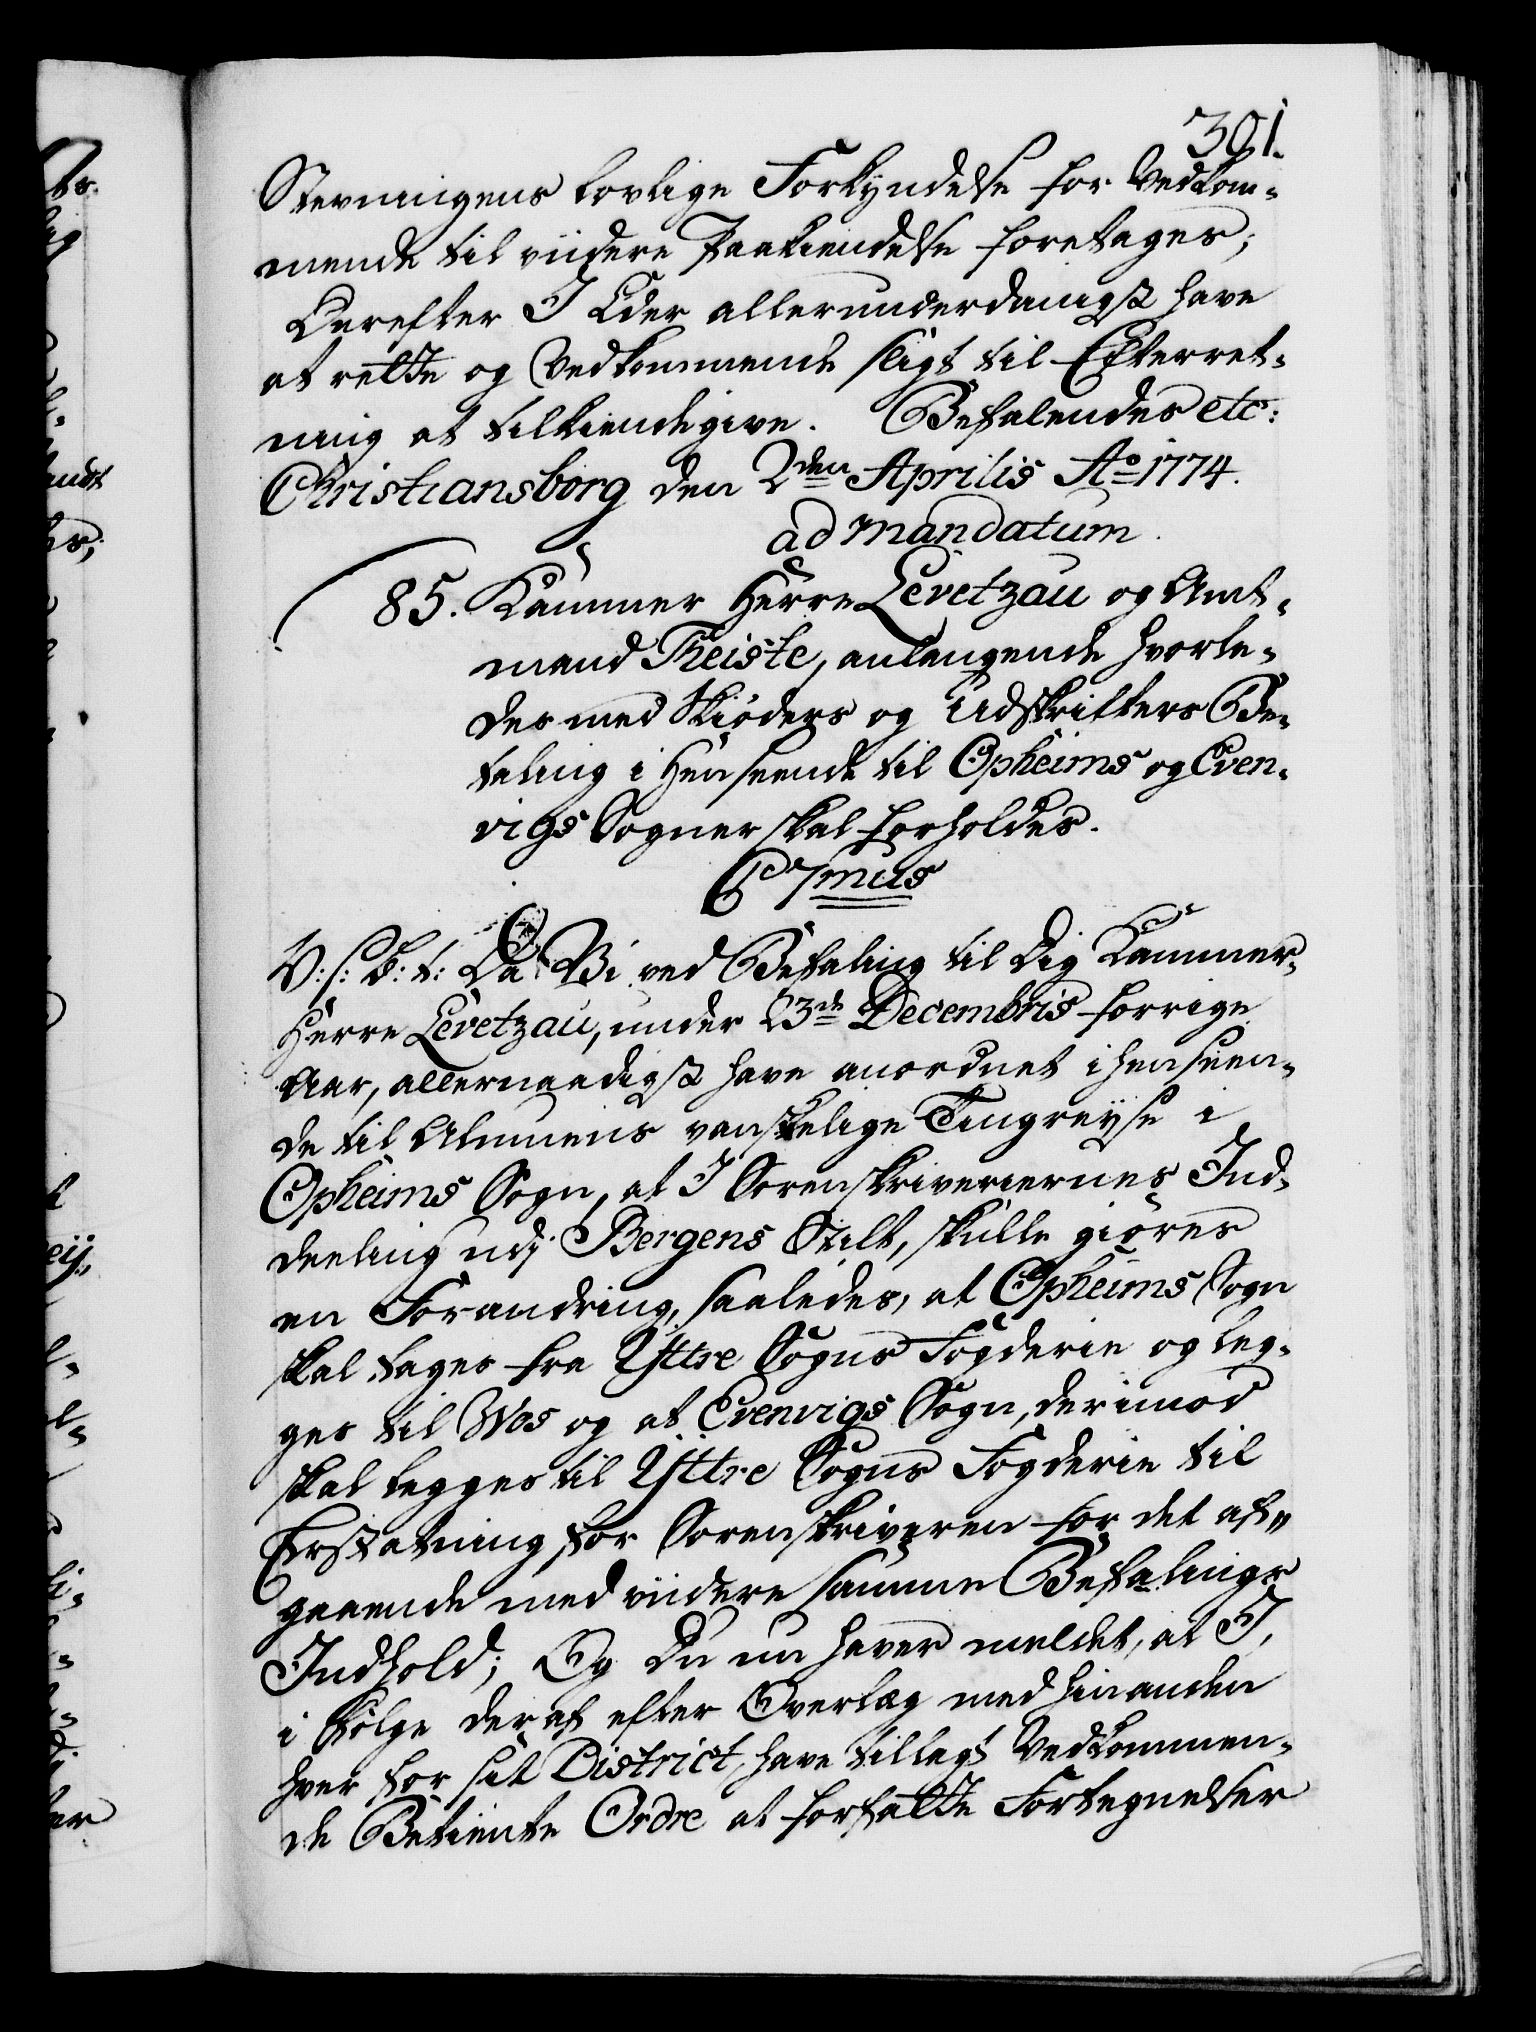 301.
Stevningens lovlige Forkyndelse for Vedkom-
mende til viidere Paakiendelse foretages;
Derefter I Eder allerunderdanigst have
at rette og Vedkommende sligt til Efterret-
ning at tilkiendegive. Befalendes etc:
Christiansborg den 2den Aprilis Ao 1774.
ad mandatum.
85. Kammer Herre Levetzau og Amt-
mand Fleiste, anlangende hvorle-
des med Skiøders og Udskrifters Be-
taling i Henseende til Opheims og Even-
vigs Sogner skal forholdes.
C 7mus
V: s: B: t: Da Vi ved Befaling til Dig Kammer-
Herre Levetzau, under 23de Decembris forrige
Aar, allernaadigst have anordnet i henseen-
de til Almuens vanskelige Tingreyse i
Opheims Sogn, at I Sorenskriveriernes Ind-
deeling udj Bergens Stift, skulle giøres
en Forandring, saaledes, at Opheims Sogn
skal tages fra Yttre Sogns Fogderie og leg-
ges til Wos og at Evenvigs Sogn, derimod
skal legges til Yttre Sogns Fogderie til
Erstatning for Sorenskriveren for det af-
gaaende med viidere samme Befalings
Indhold; Og Du nu haver meldet, at I,
i Følge deraf efter Overlæg med hinanden
hver for sit District, have tillagt Vedkommen-
de Betiente Ordre at forfatte Fortegnelser